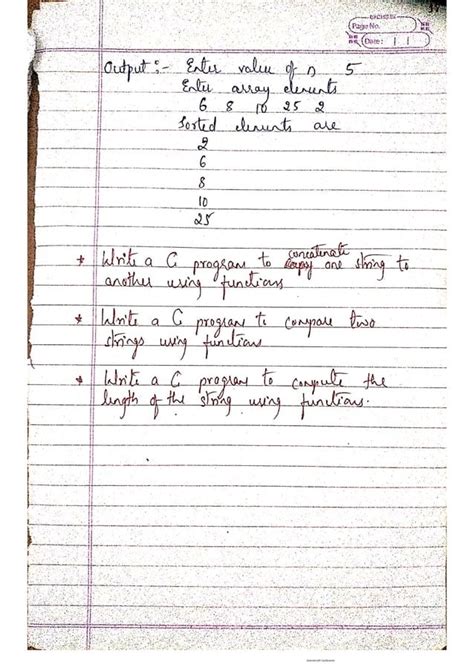 Page No.
Date: | |
Output :- Enter value of n 5
Enter array elements
6 8 10 25 2
Sorted elements are
2
6
8
10
25
* Write a C program to concatenate copy one string to
another using functions
* Write a C program to compare two
strings using functions
* Write a C program to compute the
length of the string using functions.